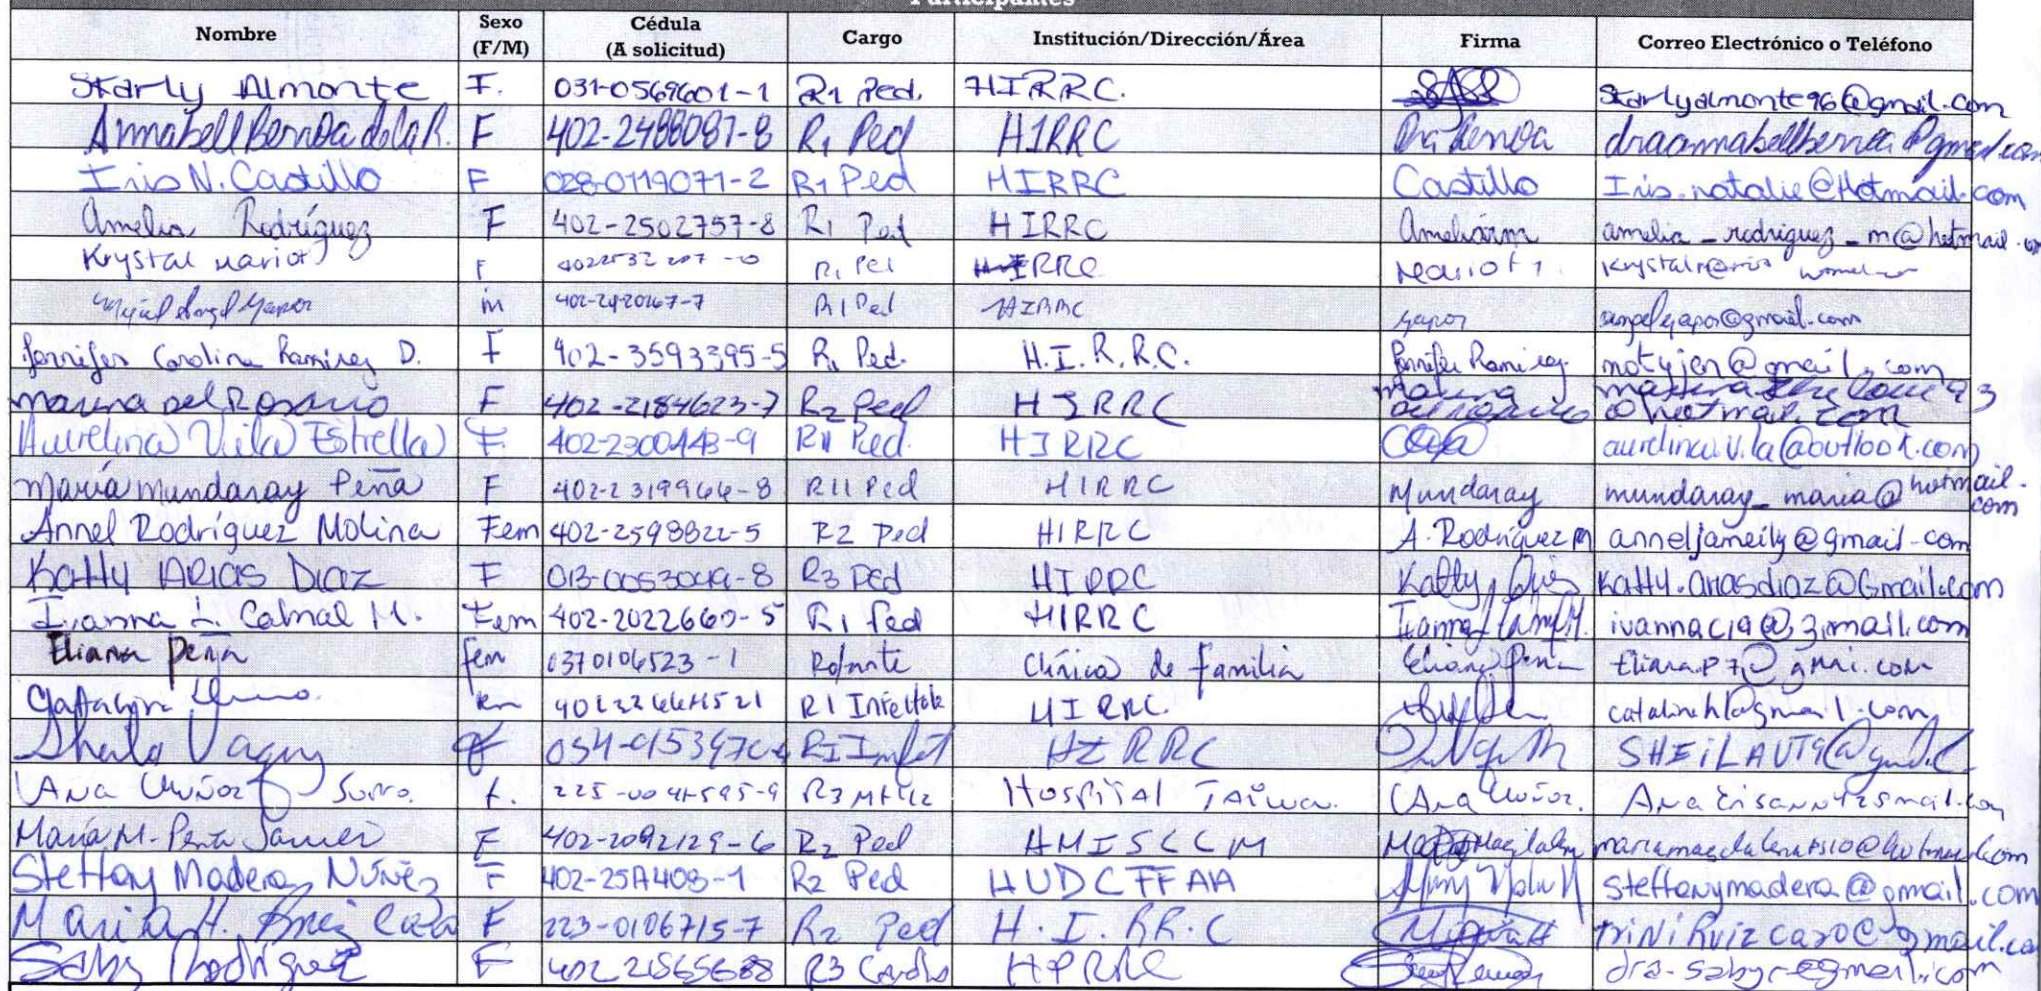 Participantes
Nombre Sexo (F/M) Cédula (A solicitud) Cargo Institución/Dirección/Área Firma Correo Electrónico o Teléfono
Starly Almonte F. 031-0569601-1 R1 Ped. HIRRC. Starlyalmonte96@gmail.com
Annabell Berroa de la R. F 402-2488087-8 R1 Ped HIRRC Dra Berroa draannabellberroa@gmail.com
Iris N. Castillo F 028-0119071-2 R1 Ped HIRRC Castillo Iris.natalie@Hotmail.com
Amelia Rodríguez F 402-2502757-8 R1 Ped HIRRC Ameliarm amelia_rodriguez_m@hotmail.com
Krystal Mariot F R1 Ped HIRRC Mariot
Miguel Angel Yapor m R1 Ped HIRRC Yapor angelyapor@gmail.com
Jennifer Carolina Ramirez D. F 402-3593395-5 R1 Ped. H.I.R.R.C. Jennifer Ramirez motyjen@gmail.com
Maura del Rosario F 402-2184623-7 R2 Ped HIRRC Maura del Rosario @hotmail.com
Aurelina Vila Estrella F. 402-2300443-9 RII Ped. HIRRC aurelina.vila@outlook.com
María Mundaray Peña F 402-2319966-8 RII Ped HIRRC Mundaray mundaray_maria@hotmail.com
Annel Rodríguez Molina Fem 402-2598822-5 R2 Ped HIRRC A. Rodríguez M anneljameily@gmail.com
Katty Arias Diaz F 013-0053049-8 R3 PEd HIRRC Katty Arias Katty.ariasdiaz@Gmail.com
Ivanna L. Cabral M. Fem 402-2022660-5 R1 Ped HIRRC ivannacl9@gmail.com
Eliana Peña fem 0370106523-1 Rotante Clínica de familia Eliana Peña Eliana.p7@gmai.com
Catalina HIRRC
Sheila HIRRC
Ana Muñoz F. Hospital Taiwan. Ana Muñoz.
María M. Peña F 402-2092129-6 R2 Ped HMISCCM
Steffany Madera Núñez F R2 Ped HUDCFFAA steffanymadera@gmail.com
María F 223-0106715-7 R2 Ped H.I.RR.C triniRuizcaro@gmail.com
Saby Rodriguez F R3 dra-sabyr@gmail.com